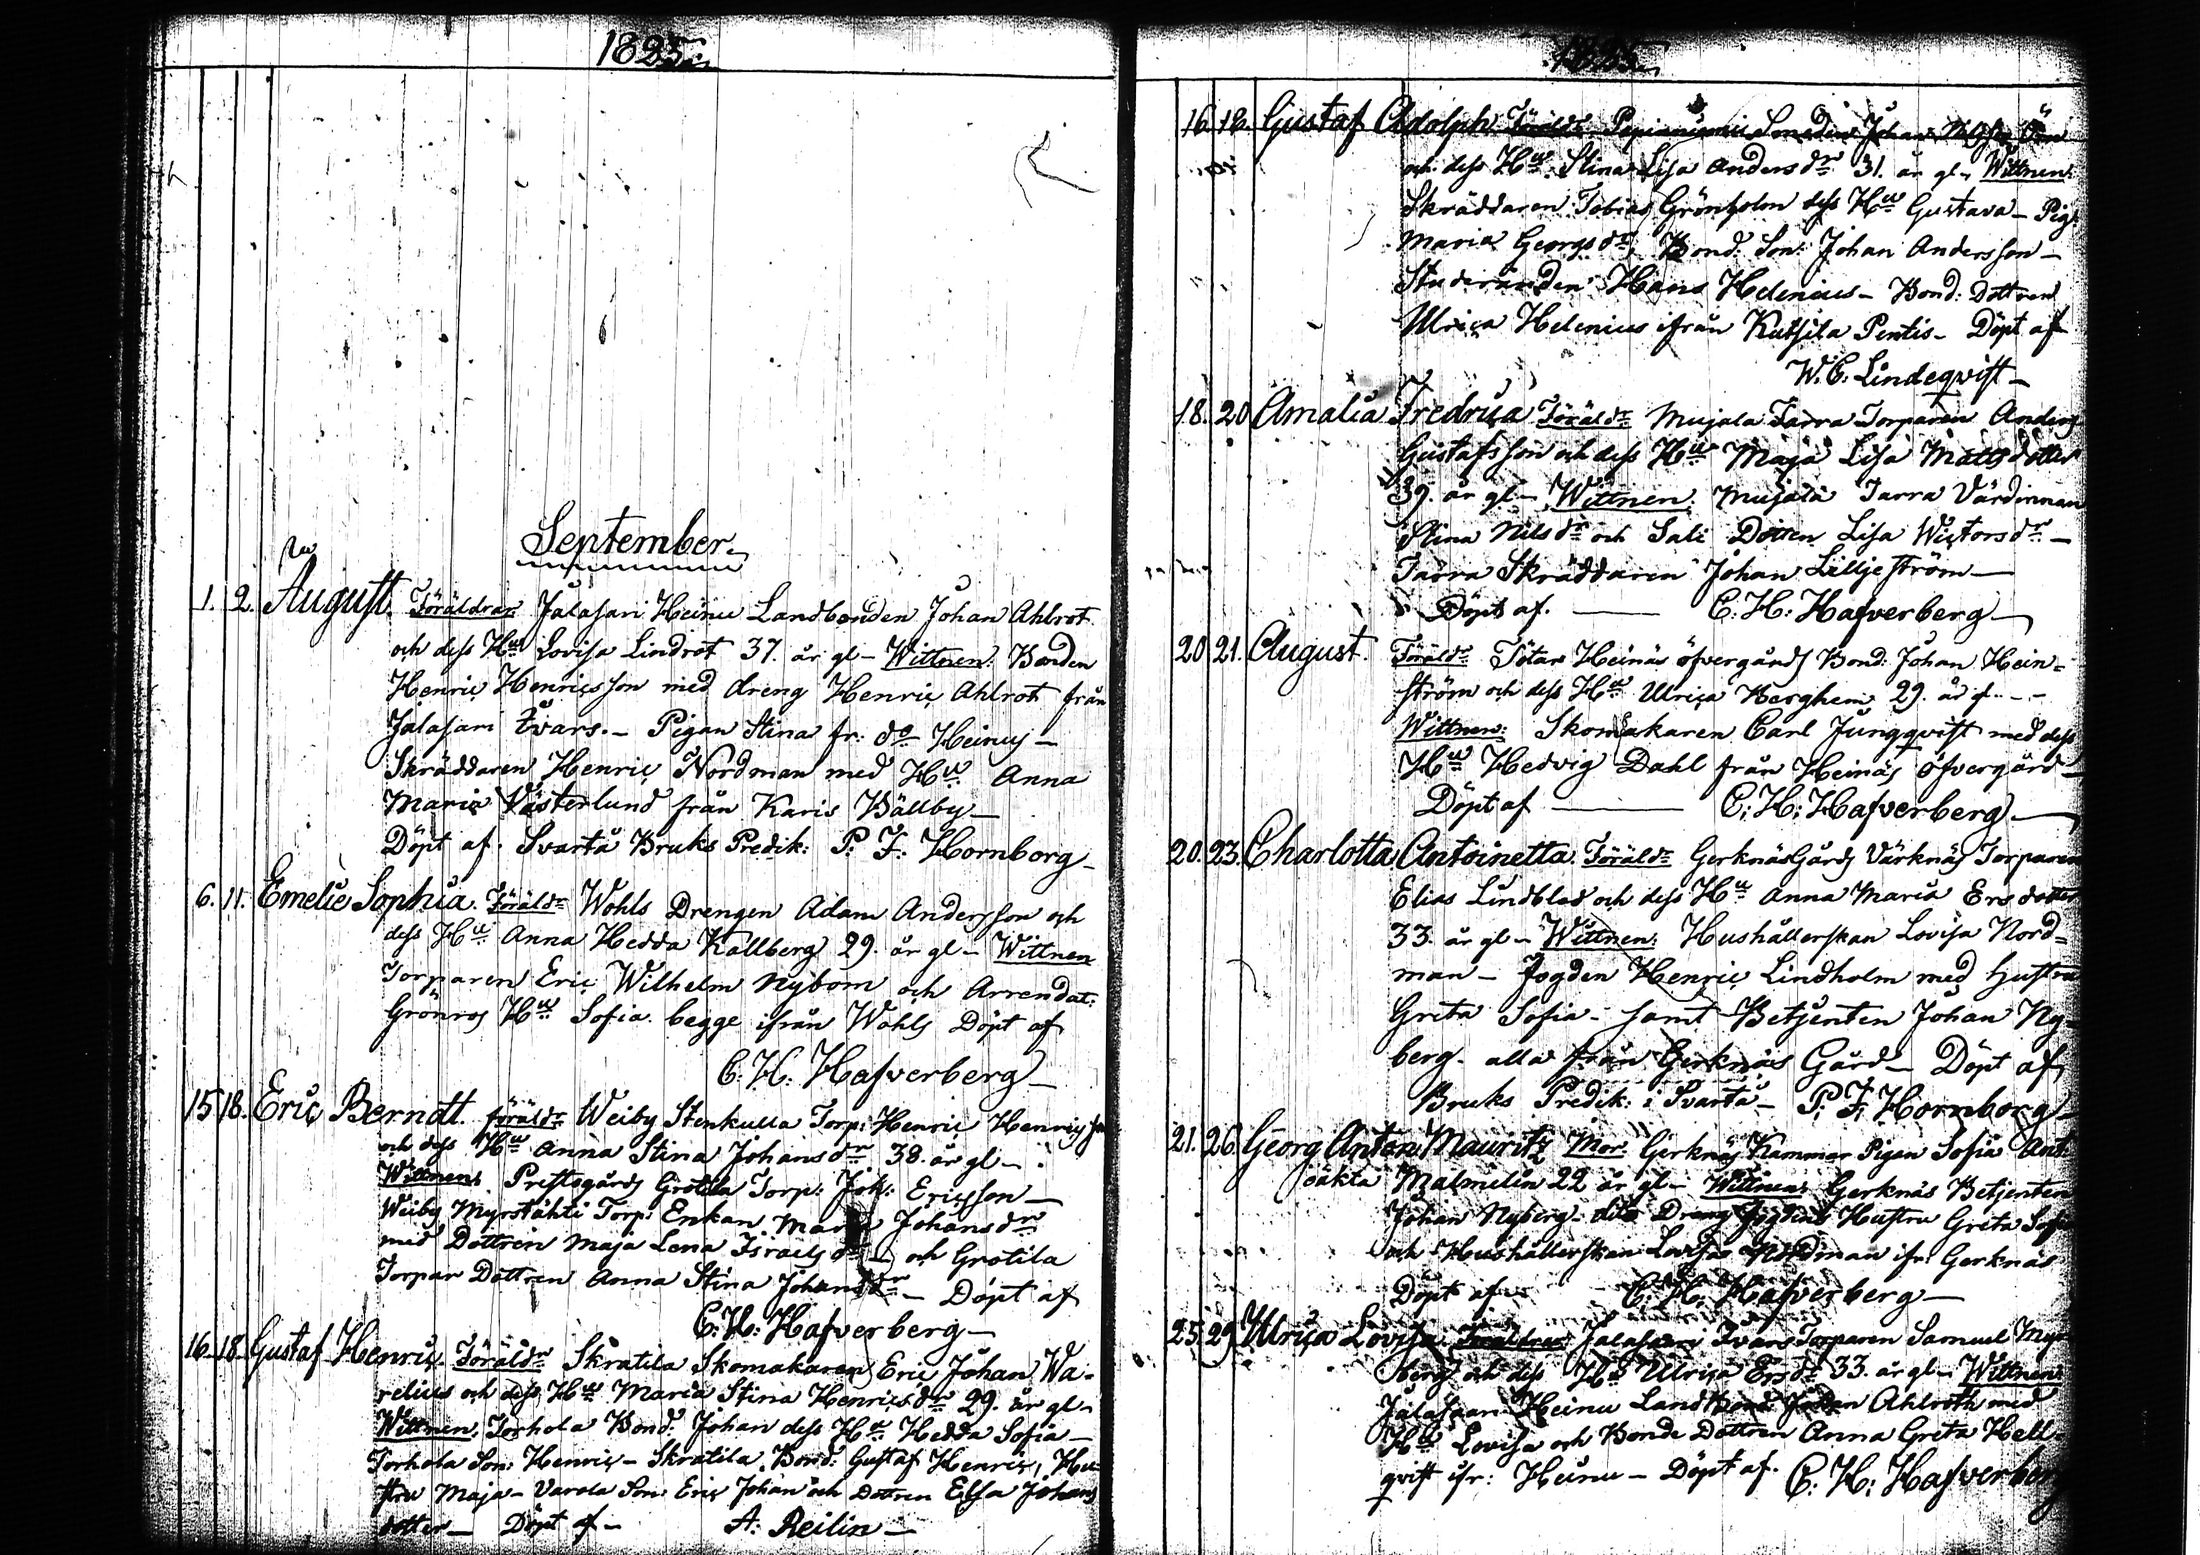 1825
September
1. 2. August. Föräldrar Jalasari Heinu Landbonden Johan Ahlrot
och dess Hu Lovisa Lindrot 37. år gl – Wittnen: Bonden
Henric Henricsson med dreng Henric Ahlrot från
Jalasari Tvars. – Pigan Stina fr. do Heinus –
Skräddaren Henric Nordman med Hu Anna
Maria Västerlund från Karis Bällby –
Döpt af. Svartå Bruks Predik: P. F. Hornborg –
6. 11. Emelie Sophia. Föräldr Wohls Drengen Adam Andersson och
dess Hu Anna Hedda Kallberg 29. år gl – Wittnen
Torparen Eric Wilhelm Nybom och Arrendat:
Grönros Hu Sofia. begge ifrån Wohls Döpt af
C. H. Hafverberg –
15 18. Eric Berndt. föräldr Weiby Stenkulla Torp: Henric Henrics
och dess Hu Anna Stina Johansdr 38. år gl –
Wittnen: Prestgårds Grotila Torp: Joh: Ericsson –
Weiby Myrstähti Torp: Enkan Johansdr
med Dottren Maja Lena Israelsdr – och Grotila
Torpar Dottren Anna Stina Johansdr – Döpt af
C: H: Hafverberg –
16 18 Gustaf Henric. Föräldr Skratila Skomakaren Eric Johan Wa-
relius och dess Hu Maria Stina Henricsdr 29. år gl –
Wittnen. Torhola Bond: Johan dess Hu Hedda Sofia –
Torhola Son: Henric – Skratila Bond: Gustaf Henric, Hu-
stru Maja – Varola Son: Eric Johan och Dottren Elsa Johans
dotter – Döpt af – A: Reilin –
1825
16 18. Gustaf Adolph. Föräldr Smeden Johan
och dess Hu. Stina Lisa Andersdr 31. år gl – Wittnen:
Skräddaren Tobias Grönholm dess Hu Gustava – Pig.
Maria Georgsdr, Bond: Son: Johan Andersson –
Studeranden Hans Helenius – Bond: Dottren
Ulrica Helenius ifrån Kutsila Pentis – Döpt af
W. C: Lindeqvist –
18. 20 Amalia Fredrica Föräldr Mujala Tarra Torparen Anders
Gustafsson och dess Hu Maja Lisa Mattsdotter
39. år gl – Wittnen. Mujala Tarra Värdinnan
Stina Nilsdr och Sali Dottren Lisa Wictorsdr –
Tarra Skräddaren Johan Lilljeström –
Döpt af. – C: H: Hafverberg –
20 21. August. Föräldr Tötar Heinäs öfvergårds Bond: Johan Hein-
ström och dess Hu Ulrica Berghem 29. år g. –
Wittnen: Skomakaren Carl Jungqvist med dess
Hu Hedvig Dahl från Heinäs öfvergård –
Döpt af – C: H: Hafverberg –
20. 23. Charlotta Antoinetta. Föräldr Gerknäs Gårds Värknäs Torparen
Elias Lindblad och dess Hu Anna Maria Ersdotter
33. år gl – Wittnen: Hushållerskan Lovisa Nord-
man – Fogden Henric Lindholm med hustru
Greta Sofia – samt Betjenten Johan Ny-
berg. alla från Gerknäs Gård – Döpt af
Bruks Predik: i Svartå – P. F. Hornborg –
21. 26. Georg Anton Mauritz Mor Gerknäs Kammar Pigan Sofia Ant:
oäkta Malmelin 22 år gl – Wittnen: Gerknäs Betjenten
Johan Nyberg – dito Dreng Fogdens Hustru Greta Sofia
och Hushållerskan Lovisa Nordman ifr: Gerknäs
Döpt af – C: H: Hafverberg –
25. 29. Ulrica Lovisa Föräldrar Jalasari Tvars Torparen Samuel Myr
berg och dess Hu Ulrica Ersdr 33. år gl – Wittnen:
Jalasaari Heinu Landbond Johan Ahlroth med
Hu Lovisa och Bonde Dottren Anna Greta Hell-
qvist ifr: Heinu – Döpt af. C: H: Hafverberg